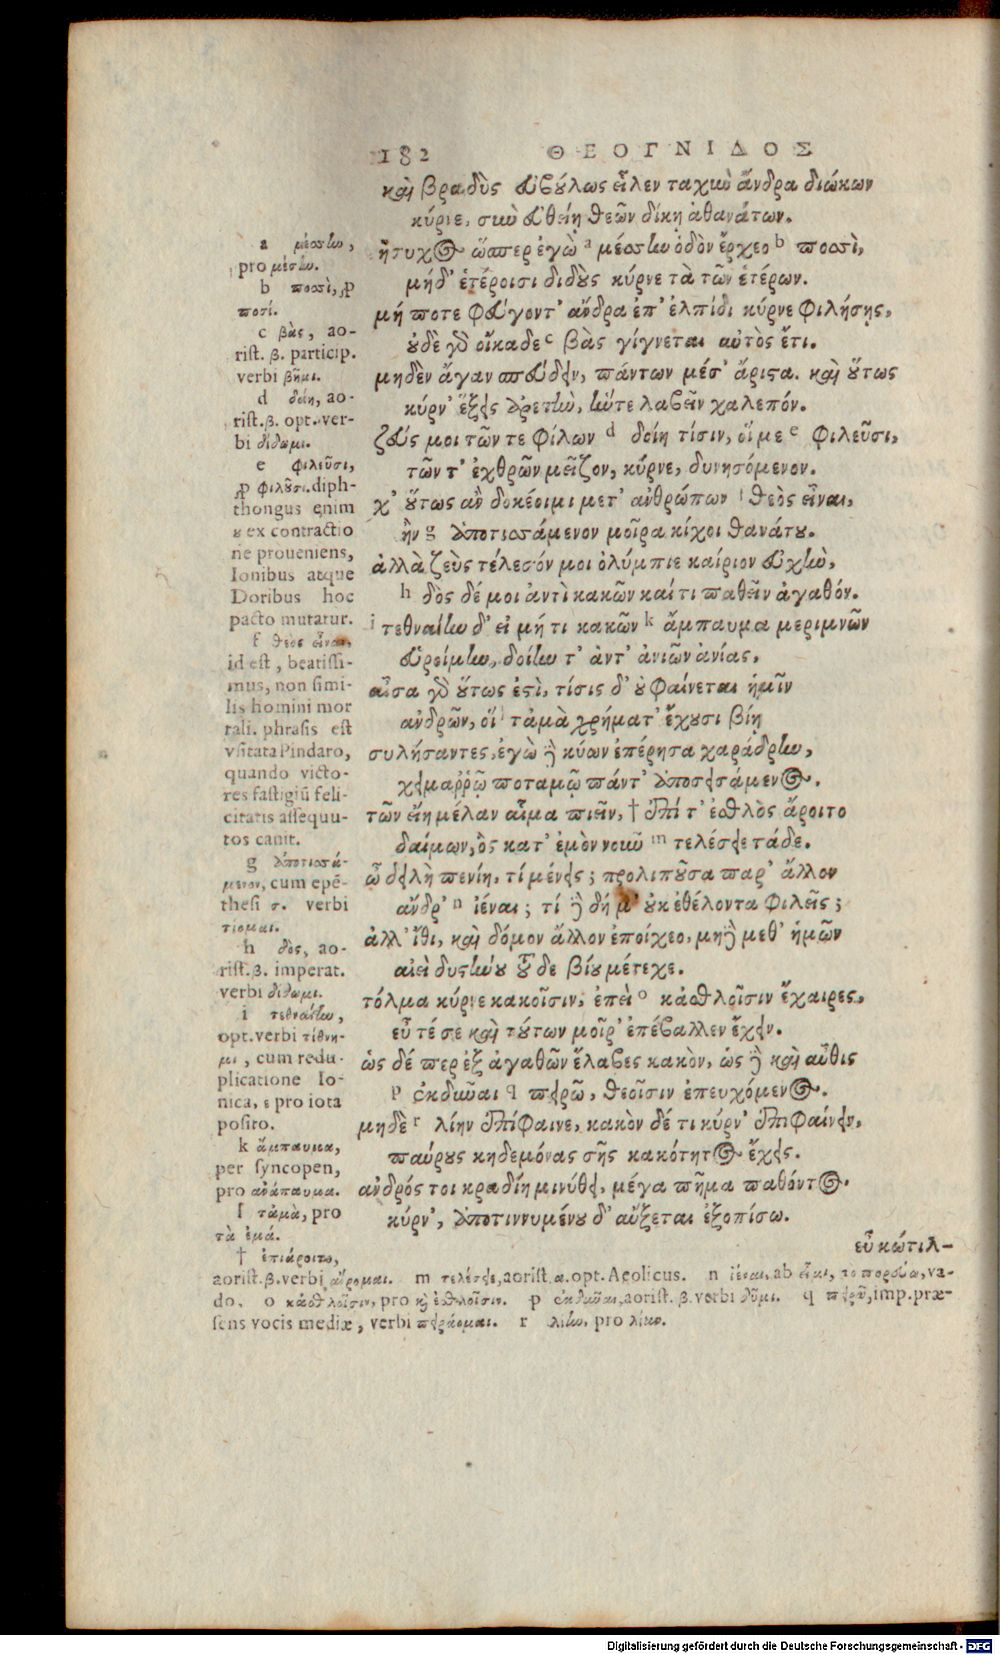 182 ΘΕΟΓΝΙΔΟΣ
καὶ βραδὺς εὐβούλως εἷλεν ταχιὺ ἄνδρα διώκων
κύρνε, σιιὺ εὐθείῃ θεῶν δίκῃ ἀθανάτων.
ἥσυχος ὥσπερ ἐγὼ a μέσσιω ὁδὸν ἔρχεο b ποσσὶ,
μήδ' ἑτέροισι διδοὺς κύρνε τὰ τῶν ἑτέρων.
μή ποτε φεύγοντ' ἄνδρα ἐπ' ἐλπίδι κύρνε φιλήσῃς,
οὐδὲ γὸ οἴκαδε c βὰς γίγνεται αὐτὸς ἔτι.
μηδὲν ἄγαν σπεύδειν, πάντων μέσ' ἄριστα. καὶ οὕτως
κύρν' ἕξεις ἀρετιὼ, ἥντε λαβεῖν χαλεπόν.
ζεύς μοι τῶν τε φίλων d δοίη τίσιν, οἵ με e φιλεῦσι,
τῶν τ' ἐχθρῶν μεῖζον, κύρνε, δυνησόμενον.
χ' οὕτως ἂν δοκέοιμι μετ' ἀνθρώπων f θεὸς εἶναι,
ἢν g ἀποτισσάμενον μοῖρα κίχοι θανάτου.
ἀλλὰ ζεὺς τέλεσόν μοι ὀλύμπιε καίριον εὐχιὼ,
h δὸς δέ μοι ἀντὶ κακῶν καί τι παθεῖν ἀγαθόν.
i τεθναίιω δ' εἰ μή τι κακῶν k ἄμπαυμα μεριμνῶν
εὑροίμιω, δοίιω τ' ἀντ' ἀνιῶν ἀνίας,
αἶσα γὸ οὕτως ἐστὶ, τίσις δ' οὐ φαίνεται ἡμῖν
ἀνδρῶν, οἵ l τἀμὰ χρήματ' ἔχουσι βίῃ
συλήσαντες, ἐγὼ δὲ κύων ἐπέρησα χαράδριω,
χειμαῤῥῷ ποταμῷ πάντ' ἀποσεισάμενος.
τῶν εἴη μέλαν αἷμα πιεῖν, † ἐπί τ' ἐσθλὸς ἄροιτο
δαίμων, ὃς κατ' ἐμὸν νοιῦ m τελέσειε τάδε.
ὦ δειλὴ πενίη, τί μένεις; προλιποῦσα παρ' ἄλλον
ἄνδρ' n ἰέναι; τί δὲ δή μ' οὐκ ἐθέλοντα φιλεῖς;
ἀλλ' ἴθι, καὶ δόμον ἄλλον ἐποίχεο, μηδὲ μεθ' ἡμῶν
αἰεὶ δυστιώου τοῦδε βίου μέτεχε.
τόλμα κύρνε κακοῖσιν, ἐπεὶ o κἀσθλοῖσιν ἔχαιρες,
εὖτέ σε καὶ τούτων μοῖρ' ἐπέβαλλεν ἔχειν.
ὡς δέ περ ἐξ ἀγαθῶν ἔλαβες κακὸν, ὡς δὲ καὶ αὖθις
p ἐκδιῦαι q πειρῶ, θεοῖσιν ἐπευχόμενος.
μηδὲ r λίην ἐπίφαινε, κακὸν δέ τι κύρν' ἐπιφαίνειν,
παύρους κηδεμόνας σῆς κακότητος ἔχεις.
ἀνδρός τοι κραδίη μινύθει, μέγα πῆμα παθόντος.
κύρν', ἀποτιννυμένου δ' αὔξεται ἐξοπίσω.
εὖ κώτιλ-
a μέσσιω,
pro μέσιω.
b ποσσὶ, pro
ποσί.
c βὰς, ao-
rist. β. particip.
verbi βῆμι.
d δοίη, ao-
rist. β. opt. ver-
bi δίδωμι.
e φιλεῦσι,
pro φιλοῦσι. diph-
thongus enim
ου ex contractio
ne proueniens,
Ionibus atque
Doribus hoc
pacto mutatur.
f θεὸς εἶναι,
id est, beatissi-
mus, non simi-
lis homini mor
tali. phrasis est
vsitata Pindaro,
quando victo-
res fastigiū feli-
citatis assequu-
tos canit.
g ἀποτισσά-
μενον, cum epē-
thesi σ. verbi
τίομαι.
h δὸς, ao-
rist. β. imperat.
verbi δίδωμι.
i τεθναίιω,
opt. verbi τίθνη-
μι, cum redu-
plicatione Io-
nica, ε pro iota
posito.
k ἄμπαυμα,
per syncopen,
pro ἀνάπαυμα.
l τἀμὰ, pro
τὰ ἐμά.
† ἐπιάροιτο,
aorist. β. verbi αἴρομαι. m τελέσειε, aorist. α. opt. Aeolicus. n ἰέναι, ab εἶμι, το πορεύω, va-
do. o κἀσθλοῖσιν, pro καὶ ἐσθλοῖσιν. p ἐκδιῦαι, aorist. β. verbi δῦμι. q πειρῶ, imp. præ-
sens vocis mediæ, verbi πειράομαι. r λίιω, pro λίαν.
Digitalisierung gefördert durch die Deutsche Forschungsgemeinschaft - DFG